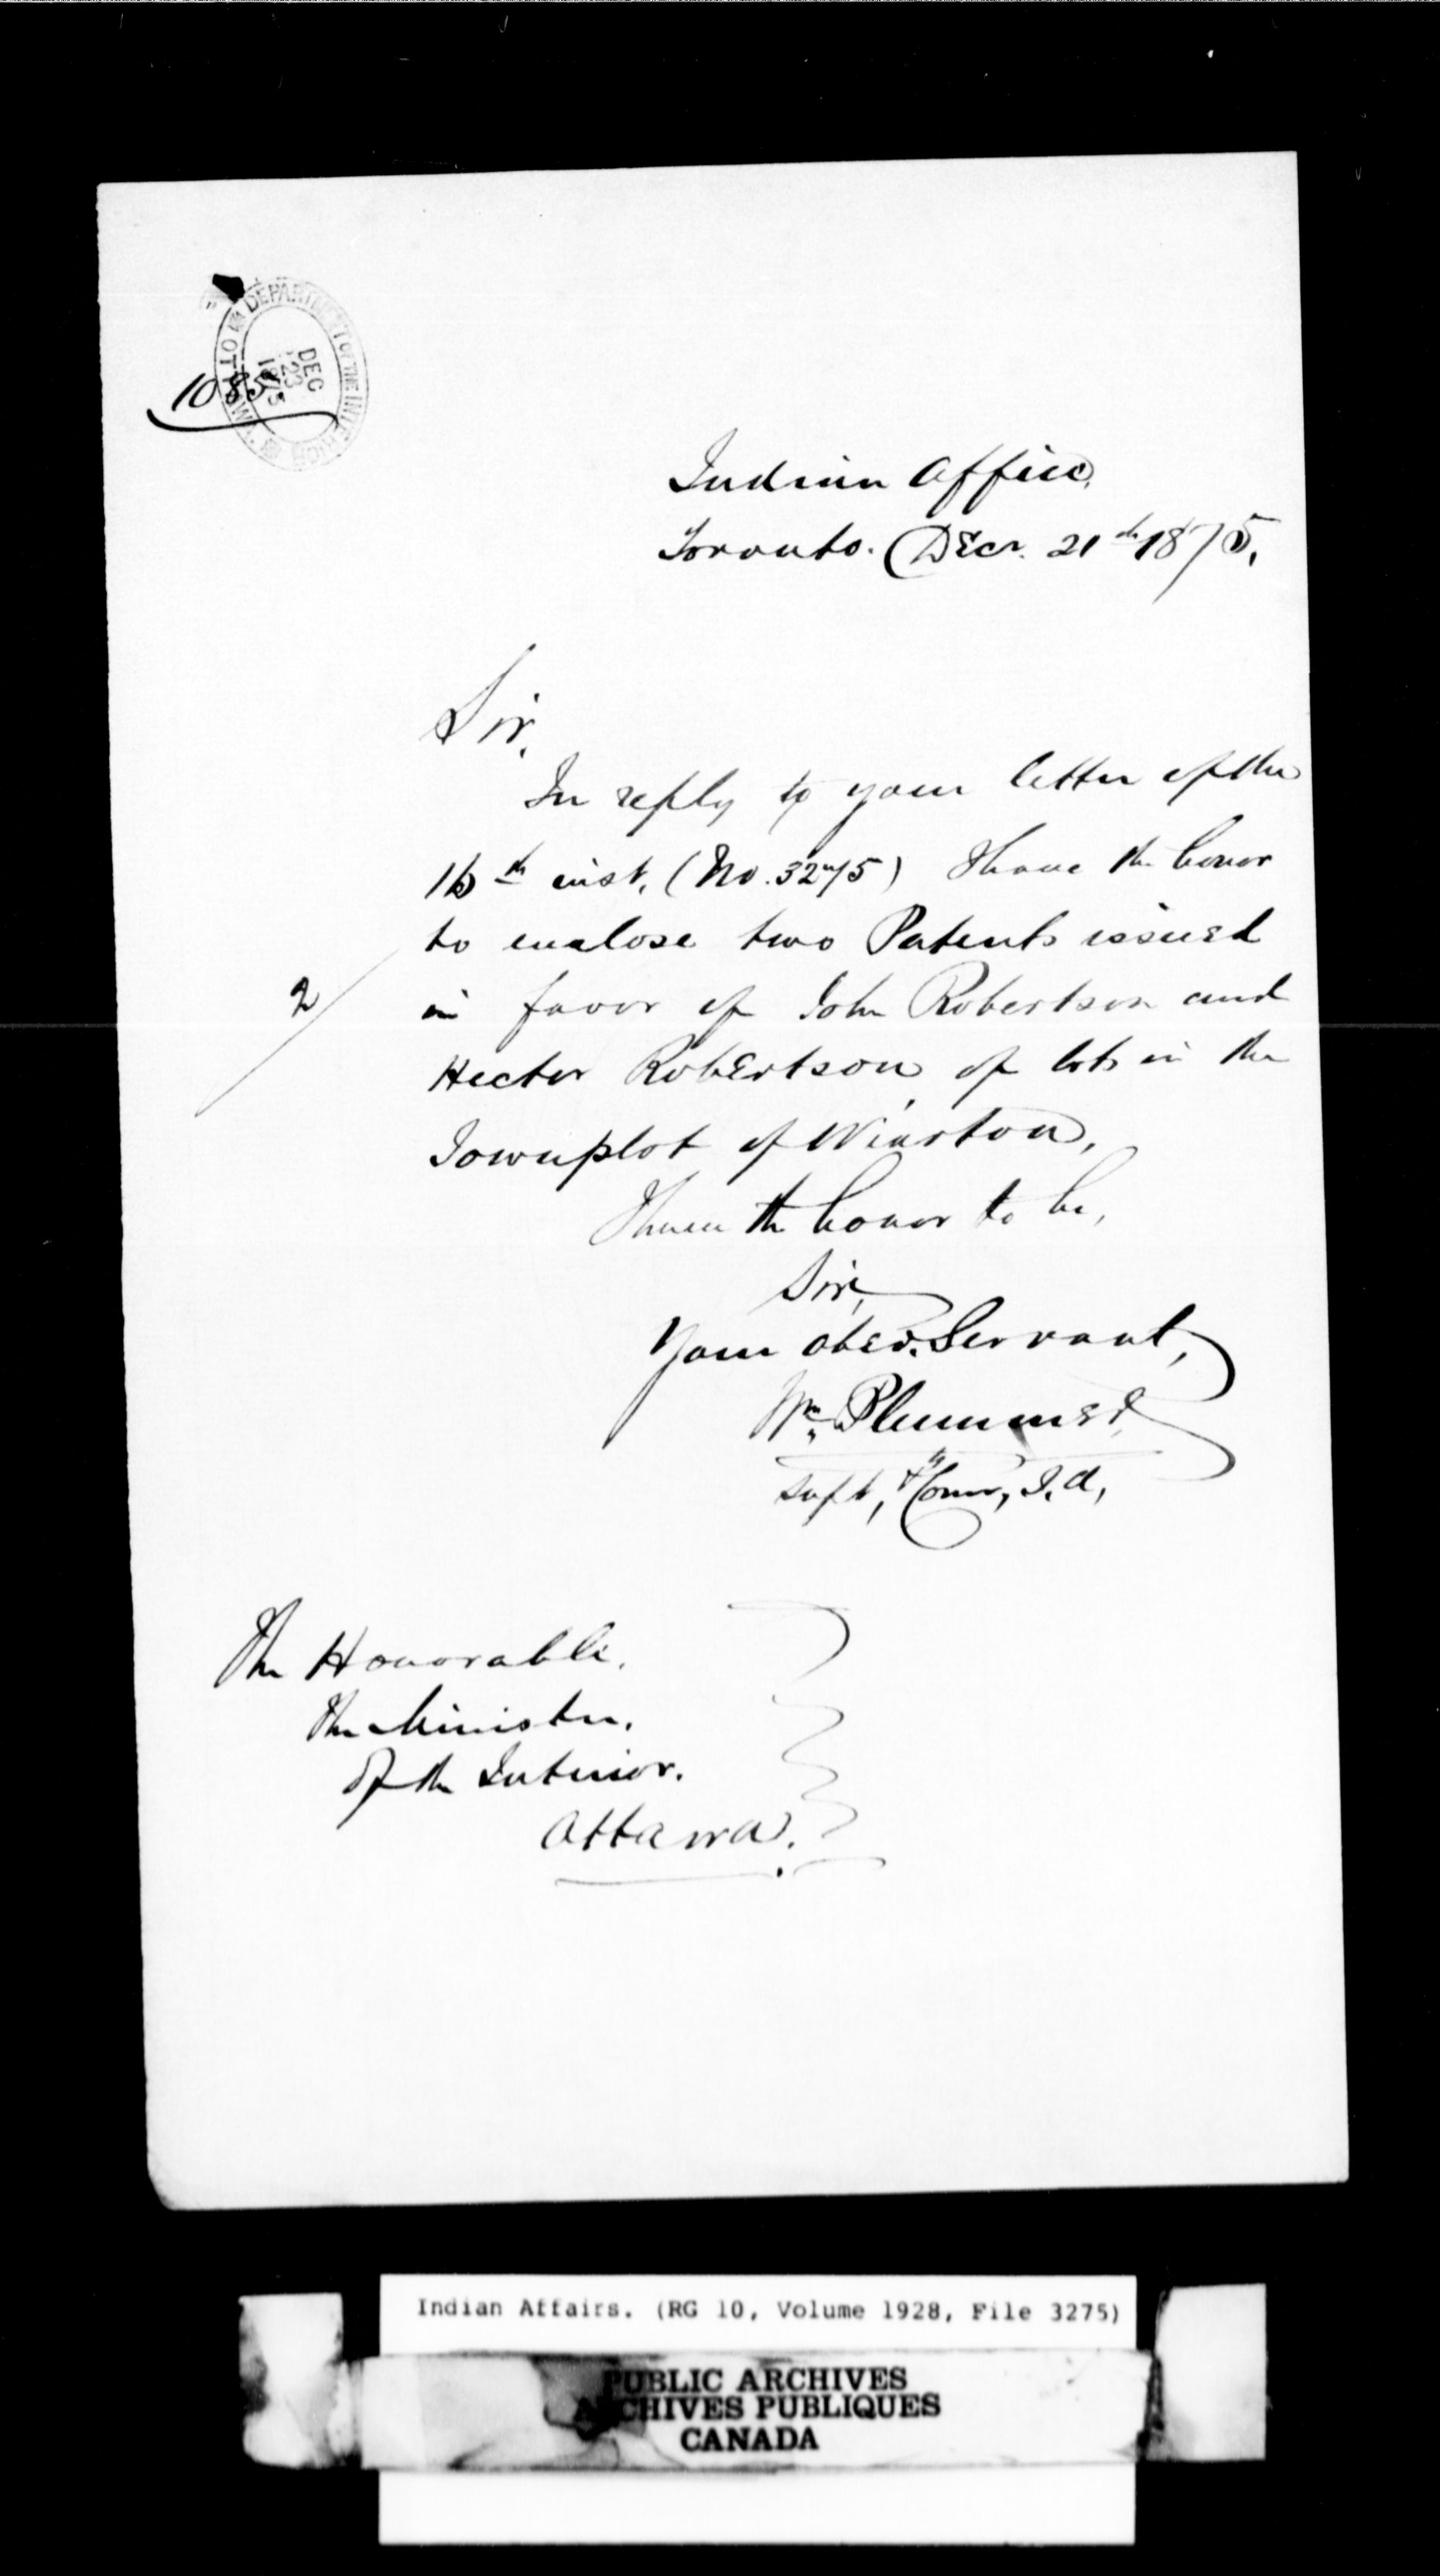 DEPARTMENT OF THE INTERIOR
OTTAWA
DEC
23
1875
1085
Indian Office,
Toronto. Decr. 21st 1875,
Sir,
In reply to your letter of the
16th inst, (No. 3275) I have the honor
to enclose two Patents issued
2/
in favor of John Robertson and
Hector Robertson, of lots in the
Townplot of Wiarton,
I have the honor to be,
Sir,
Your obed. Servant,
Wm. Plummer,
Supt, & Comr, I. A,
The Honorable,
The Minister,
Of the Interior.
Ottawa.
Indian Affairs. (RG 10, Volume 1928, File 3275)
PUBLIC ARCHIVES
ARCHIVES PUBLIQUES
CANADA